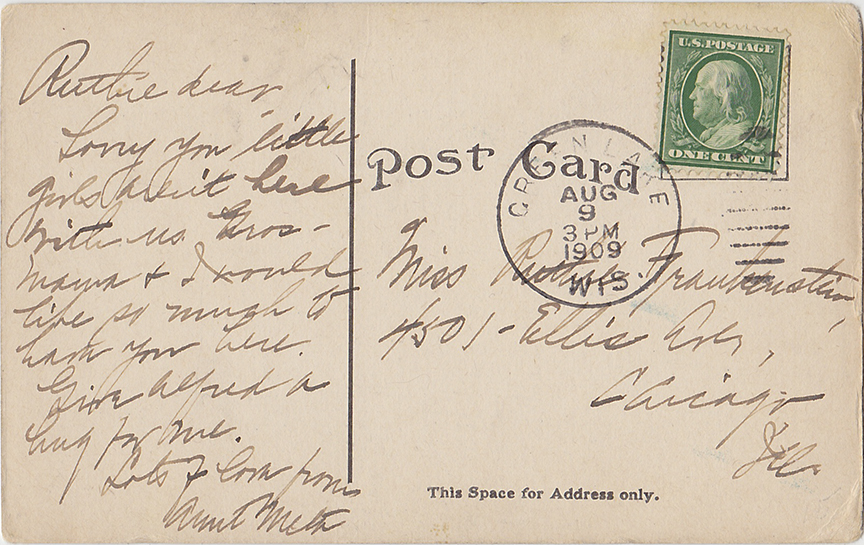 Ruthie dear
Sorry you little
girls aren't here
with us. Gros-
mama & I would
like so much to
have you here.
Give Alfred a
hug for me.
Lots of love from
Aunt Meta
Post Card
U.S. POSTAGE
ONE CENT
GREEN LAKE
AUG
9
3 PM
1909
WIS.
Miss Ruthie Frankenstein,
4501 - Ellis Ave,
Chicago
Ill.
This Space for Address only.